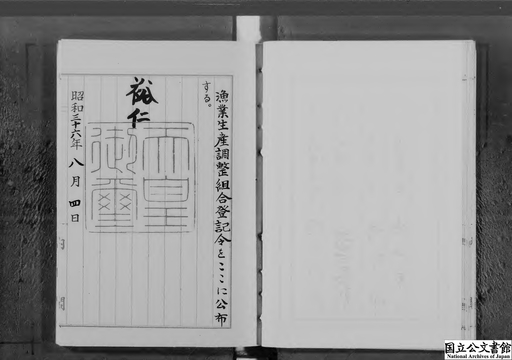 漁業生産調整組合登記令をここに公布
する。
裕仁
天皇御璽
昭和三十六年八月四日
国立公文書館
National Archives of Japan